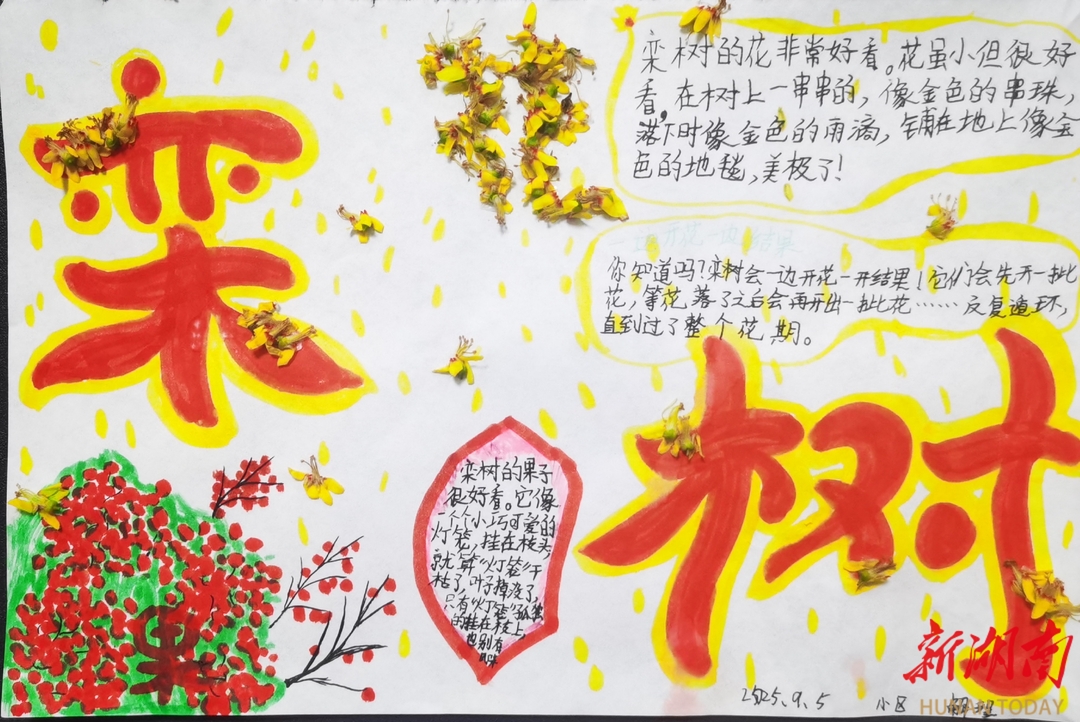 栾
花
栾树的花非常好看。花虽小但很好
看,在树上一串串的,像金色的串珠,
落下时像金色的雨滴,铺在地上像金
色的地毯,美极了!
一边开花一边结果
你知道吗?栾树会一边开花一开结果!它们会先开一批
花,等花落了之后会再开出一批花……反复循环,
直到过了整个花期。
树
栾树的果子
很好看。它像
一个个小巧可爱的
灯笼,挂在枝头,
就算“灯笼”干
枯了,叶子掉没了,
只有“灯笼”孤单
的挂在枝上,
也别有
果
2025.9.5 小区
新湖南
HUNAN TODAY